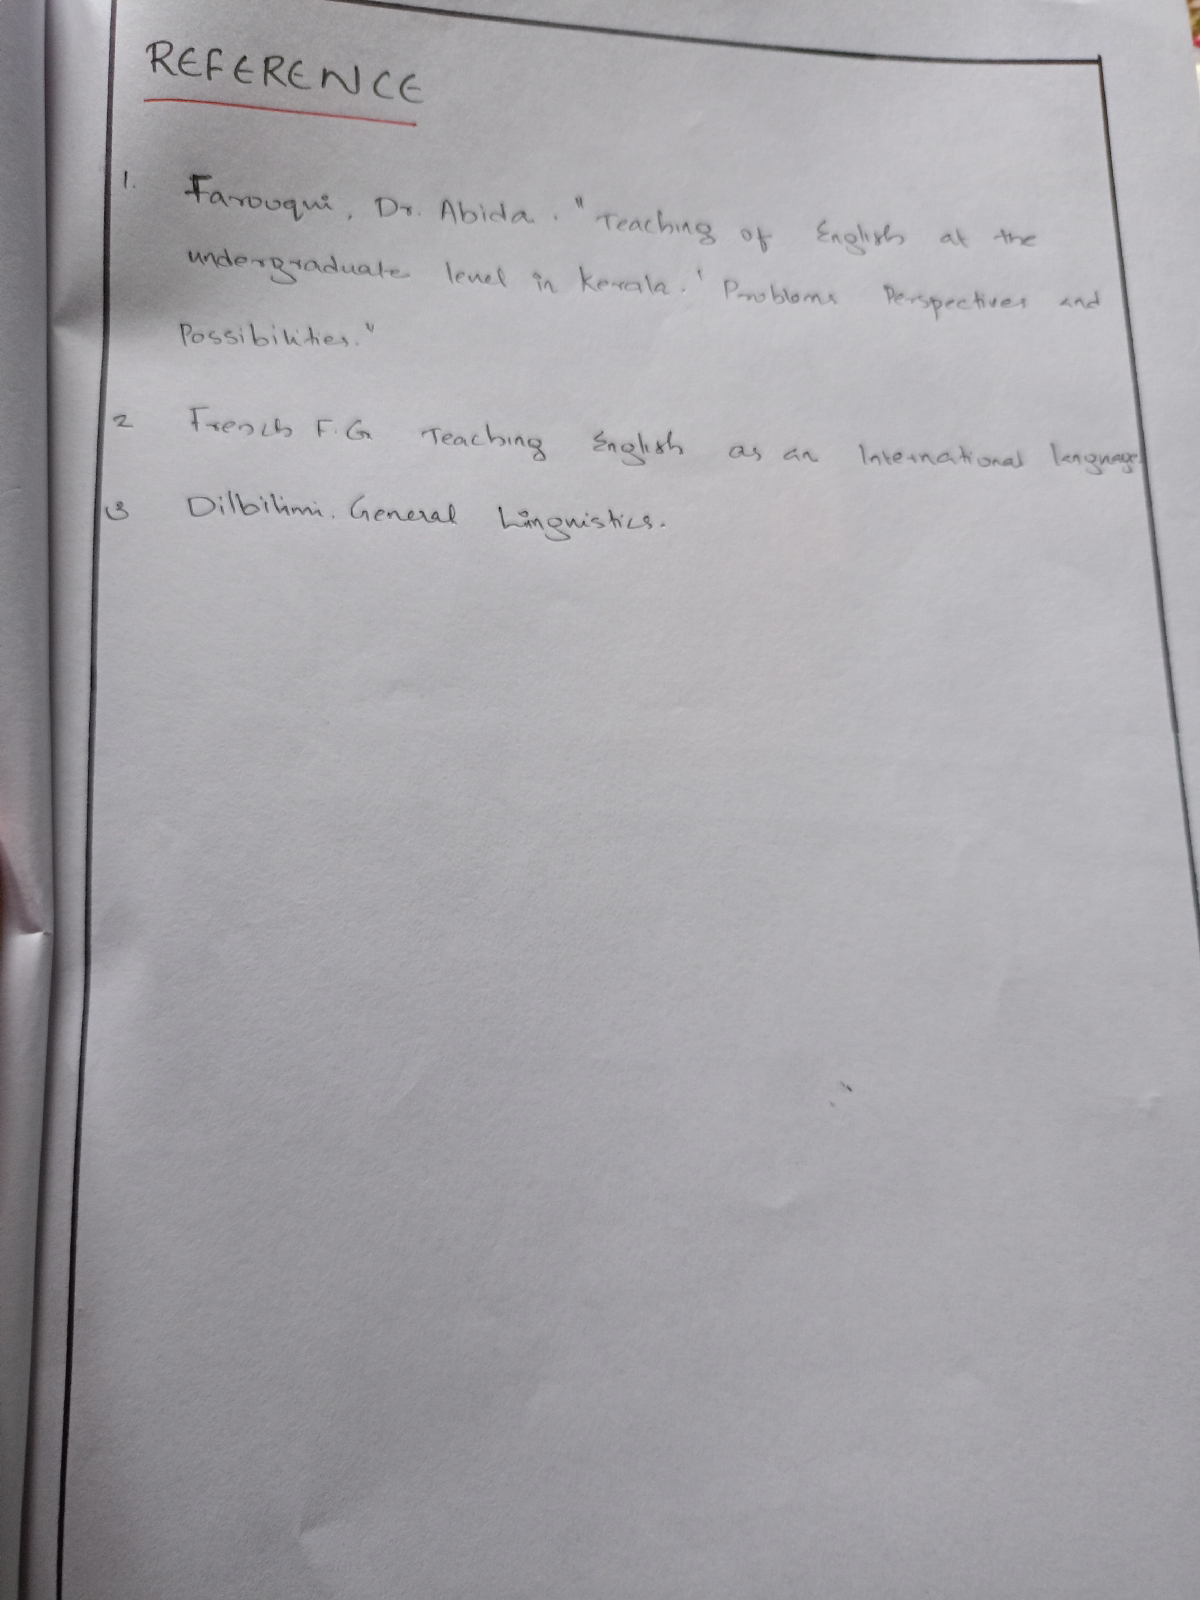 REFERENCE
1. Farouqui, Dr. Abida. "Teaching of English at the
undergraduate level in Kerala.' Problems Perspectives and
Possibilities."
2 French F.G Teaching English as an International language
3 Dilbilimi. General Linguistics.